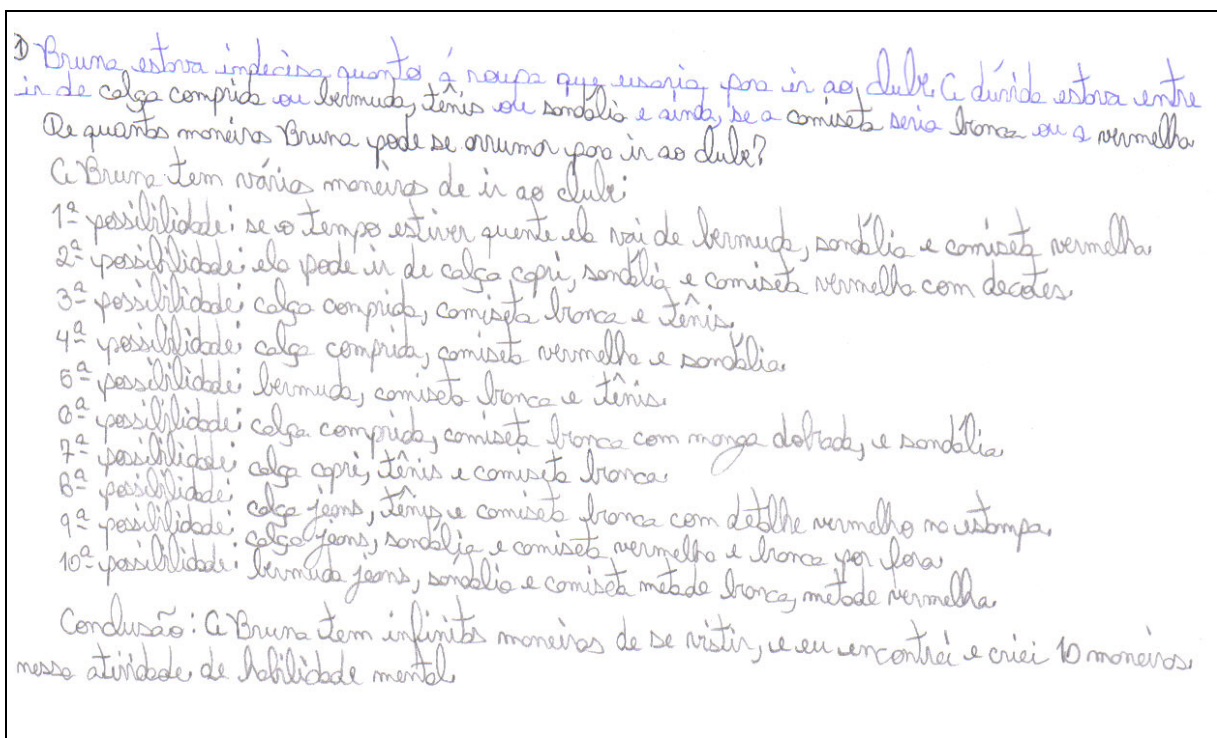 1) Bruna estava indecisa quanto à roupa que usaria para ir ao clube. A dúvida estava entre
ir de calça comprida ou bermuda, tênis ou sandália e ainda, se a camiseta seria branca ou a vermelha
De quantas maneiras Bruna pode se arrumar para ir ao clube?
A Bruna tem várias maneiras de ir ao clube:
1ª possibilidade: se o tempo estiver quente ela vai de bermuda, sandália e camiseta vermelha.
2ª possibilidade: ela pode ir de calça capri, sandália e camiseta vermelha com decotes.
3ª possibilidade: calça comprida, camiseta branca e tênis.
4ª possibilidade: calça comprida, camiseta vermelha e sandália.
5ª possibilidade: bermuda, camiseta branca e tênis.
6ª possibilidade: calça comprida, camiseta branca com manga dobrada, e sandália
7ª possibilidade: calça capri, tênis e camiseta branca.
8ª possibilidade: calça jeans, tênis e camiseta branca com detalhe vermelho na estampa.
9ª possibilidade: calça jeans, sandália e camiseta vermelha e branca por fora
10ª possibilidade: bermuda jeans, sandália e camiseta metade branca, metade vermelha.
Conclusão: A Bruna tem infinitas maneiras de se vistir, e eu encontrei e criei 10 maneiras
nessa atividade de habilidade mental.